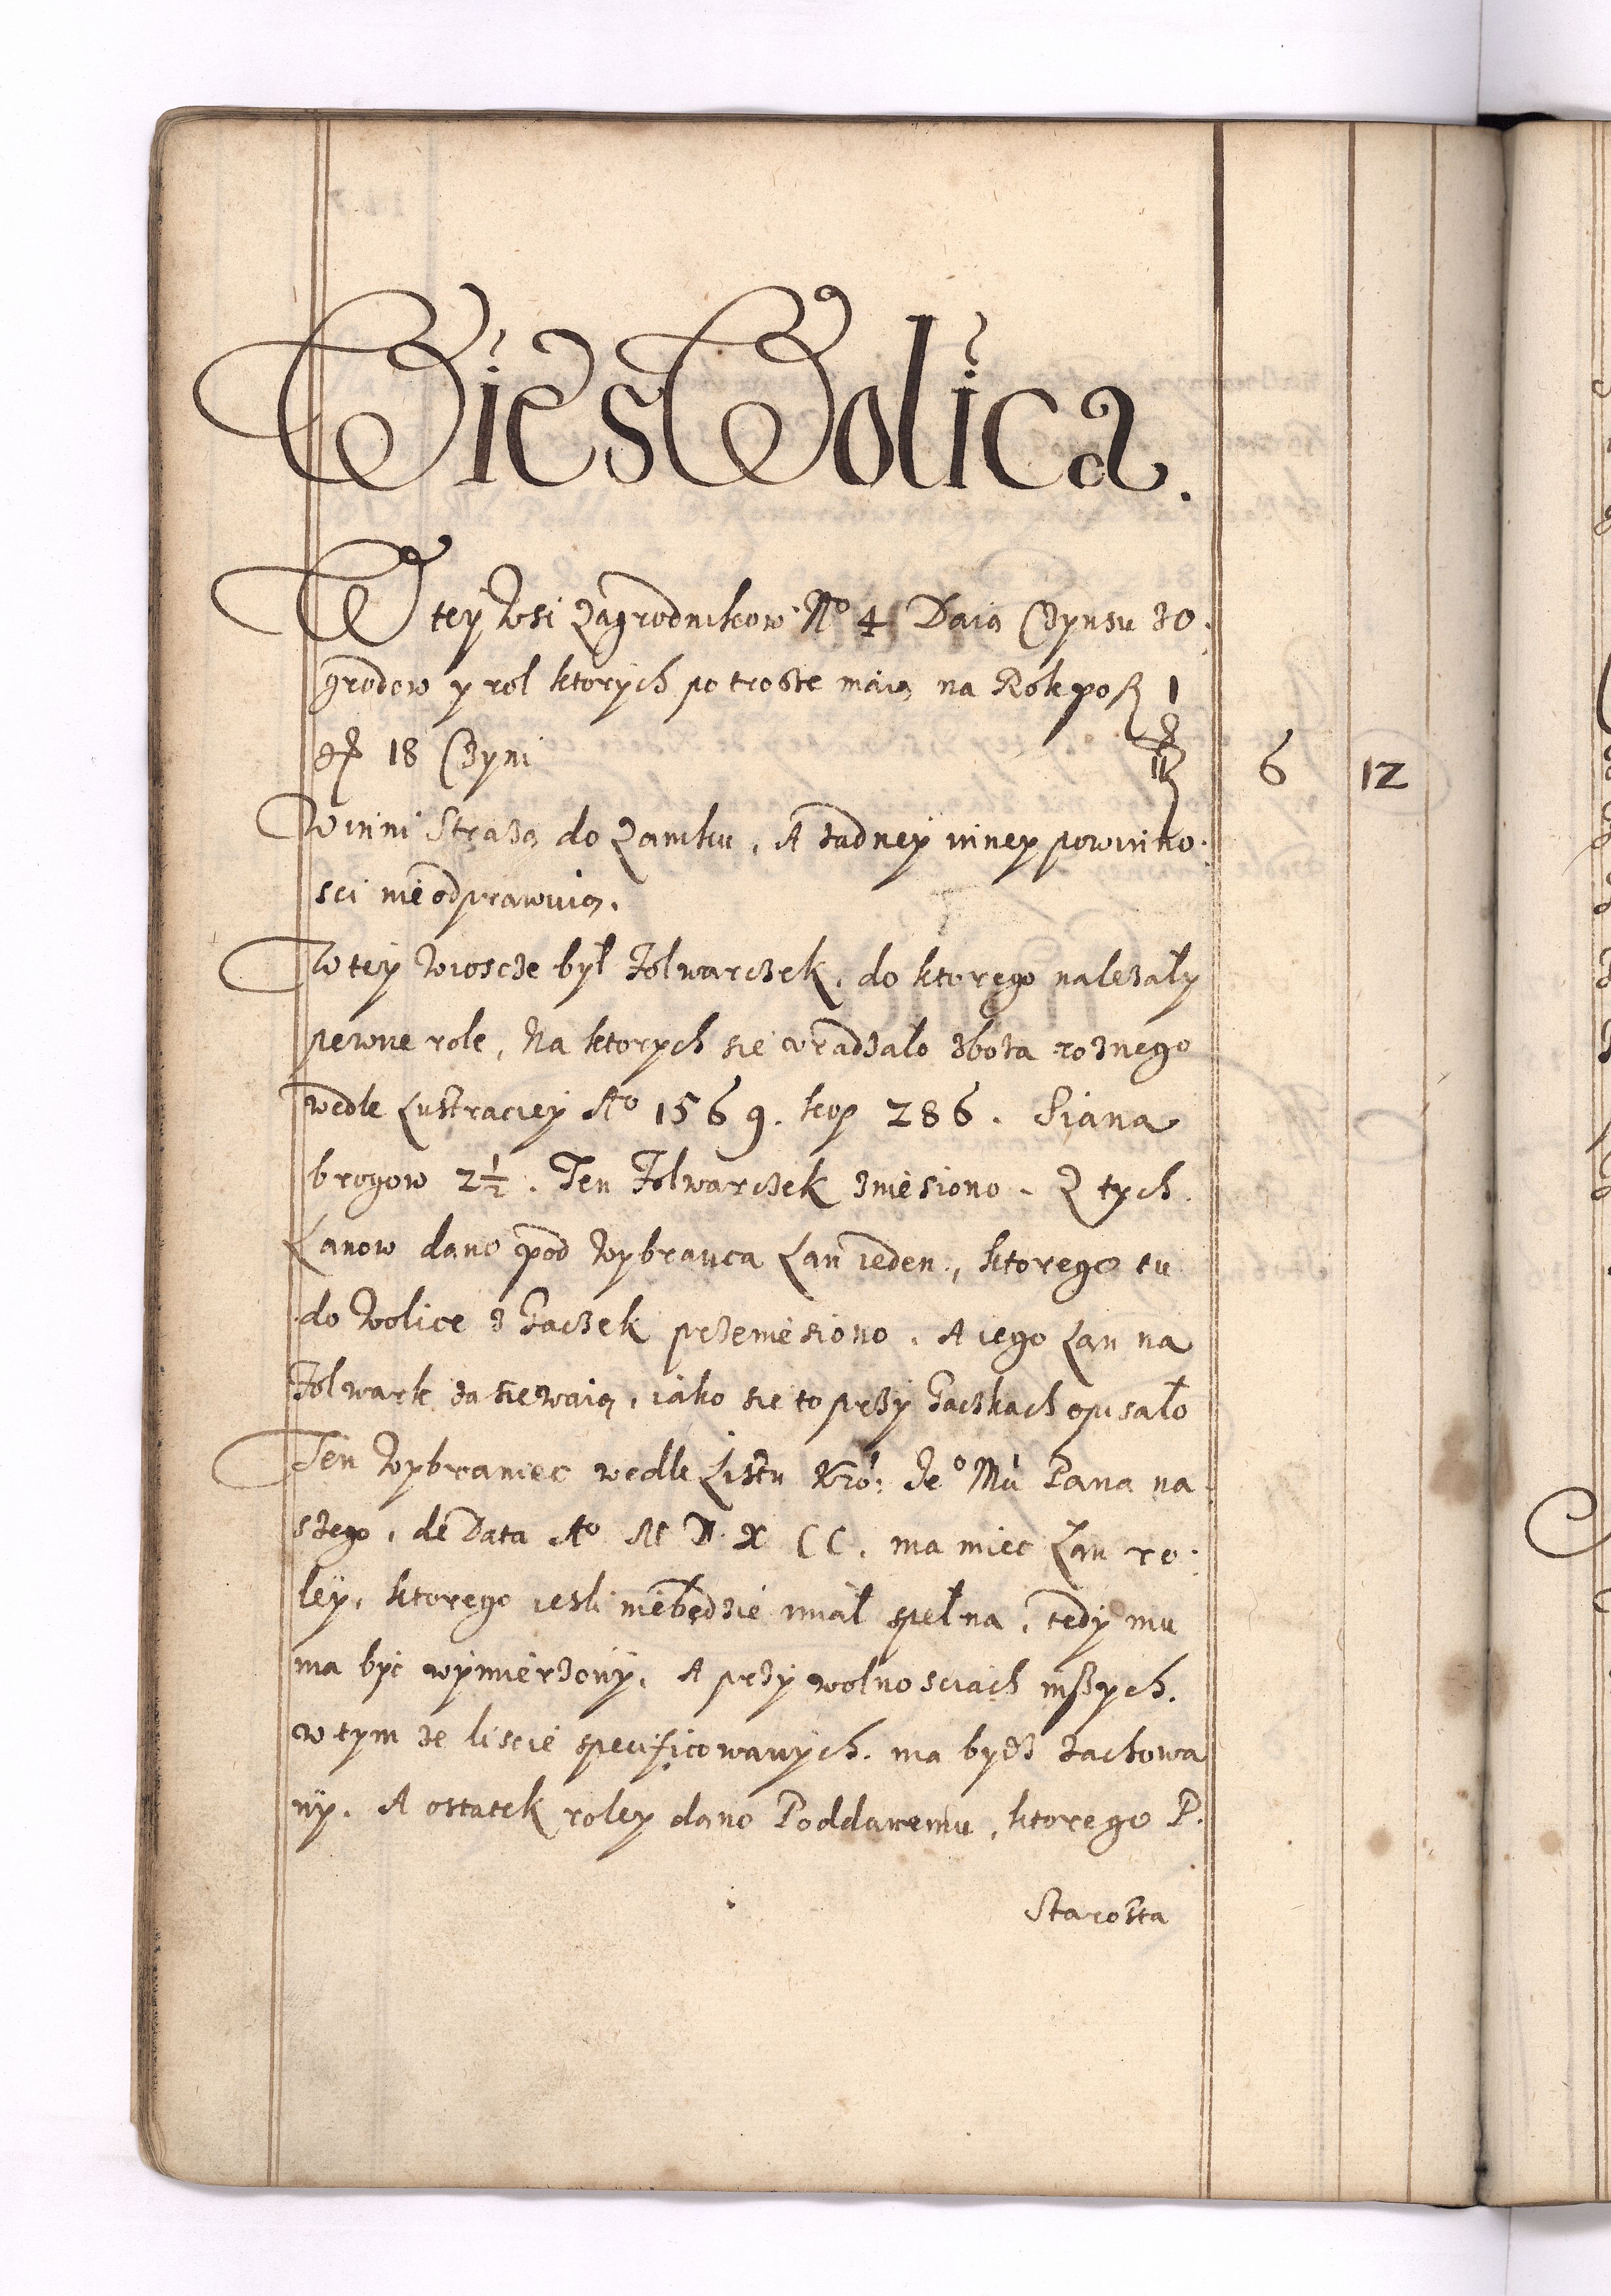 Wies Wolica.
W tey Wsi Zagrodnikow No 4 Daią Czynsu zo:
grodow y rol ktorych po trosze maią na Rok po fl 1
gr 18 Czyni fl 6 12
Winni Strażą do Zamku, A żadney inney powinno:
sci nie odprawuią.
W tey Wioscze był Folwarczek, do ktorego należały
pewne role, Na ktorych sie vradzało zboża roznego
wedle Lustraciey Ao 1569. kop 286. Siana
brogow 2½. Ten Folwarczek zniesiono. Z tych
Łanow dano pod Wybranca Łan ieden, ktorego tu
do Wolice z Gaczek przeniesiono. A iego Łan na
Folwark zasiewaią, iako sie to przy Gaczkach opisało
Ten Wybraniec wedle Listu Kro: Je° Mci Pana na:
szego, de Data Ao M D. X C C. ma miec Łan ro:
ley, ktorego iesli niebędzie miał spełna, tedy mu
ma byc wymierzony, A przy wolnosciach inszych,
w tym ze liscie specificowanych. ma bydz zachowa
ny. A ostatek roley dano Poddanemu, ktorego P.
Starosta